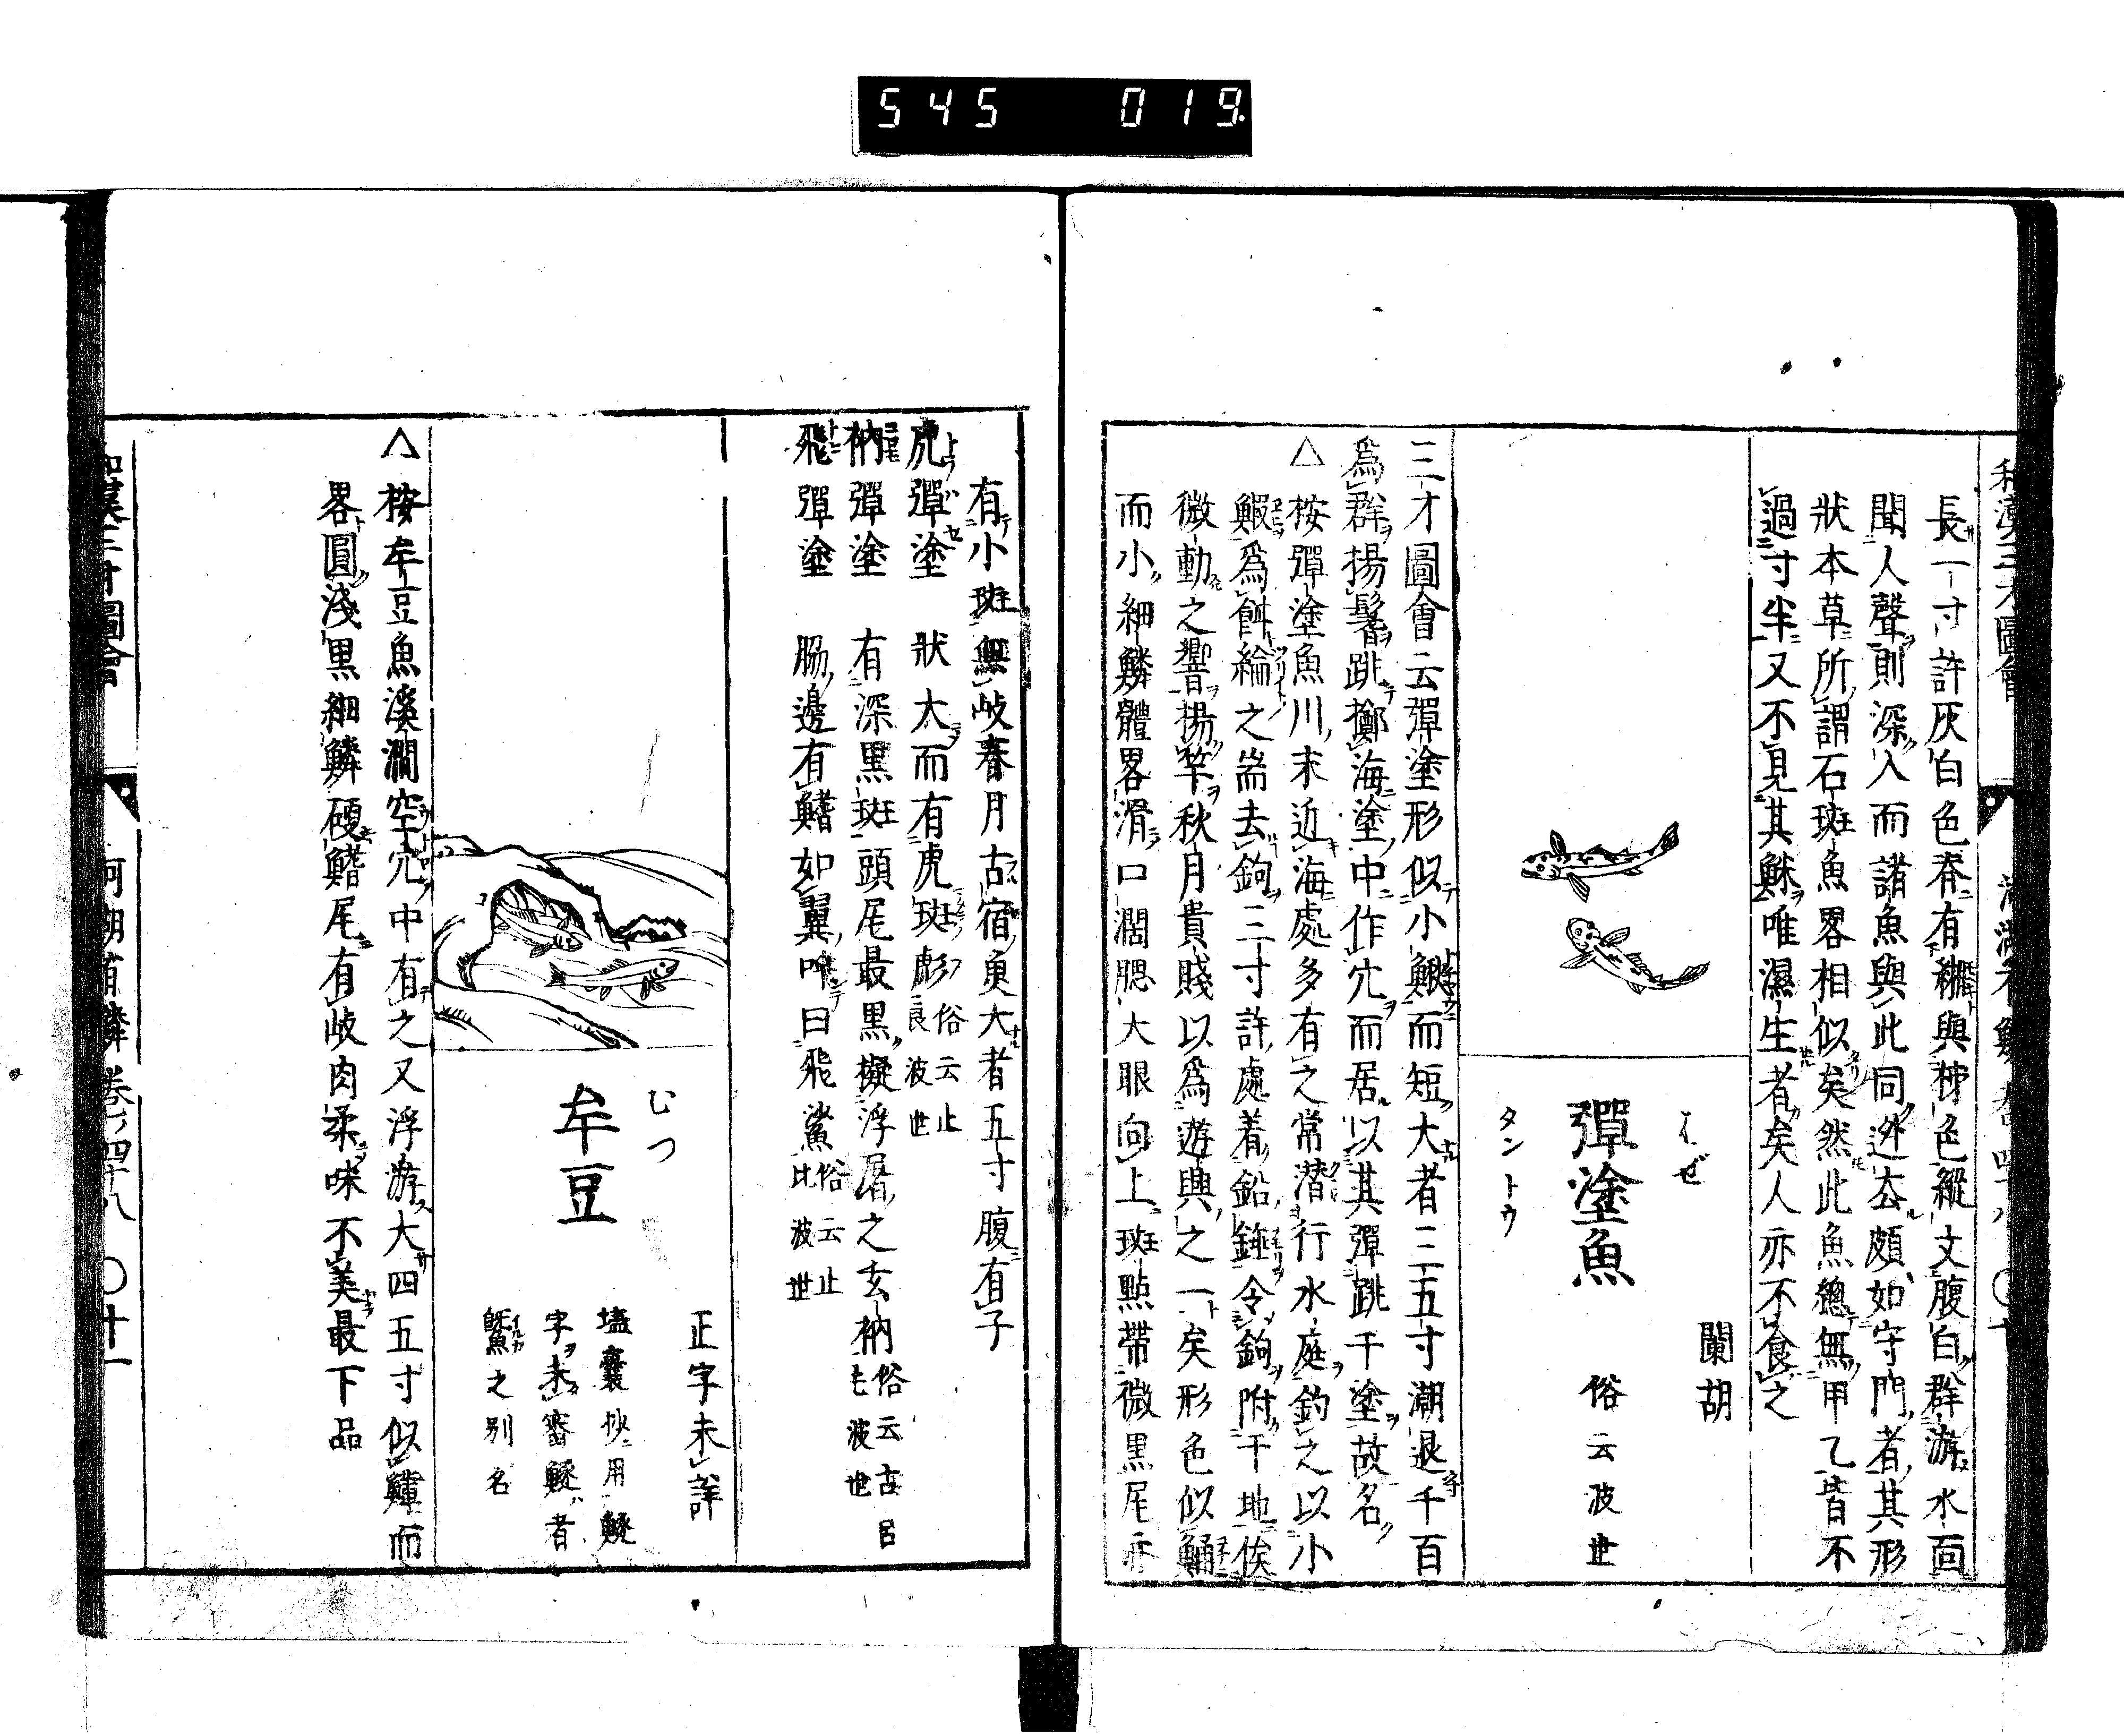 545 019
長一寸許灰白色脊有䊼與柹色縱文腹白群游水面
聞人聲則深入而諸魚與此同迯去頗如守門者其形
狀本草所謂石斑魚畧相似矣然此魚總無甲乙皆不
過寸半又不見其鮴唯濕生者矣人亦不食之
はぜ
彈塗魚
タントウ
闌胡
俗云波世
三才圖會云彈塗形似小鰍而短大者三五寸潮退千百
爲群揚鬐跳擲海塗中作穴而居以其彈跳于塗故名
△按彈塗魚川末近海處多有之常潜行水底釣之以小
鰕爲餌綸之耑去鉤三寸許處着鉛錘令鉤附于地俟
微動之響揚竿秋月貴賤以爲遊興之一矣形色似鯒
而小細鱗體畧滑口濶腮大眼向上斑點帶微黒尾亦
有小斑無岐春月古宿魚大者五寸腹有子
虎彈塗 狀大而有虎斑彪俗云止良波世
衲彈塗 有深黒斑頭尾最黒擬浮屠之玄衲俗云古呂毛波世
飛彈塗 脇邊有鰭如翼呼曰飛鯊俗云止比波世
むつ
牟豆
正字未詳
壒囊抄用鱁
字未審鱁者
鱀之別名
△按牟豆魚溪澗空穴中有之又浮游大四五寸似鱓而
畧圓淺黒細鱗硬鰭尾有岐肉柔味不美最下品
和漢三才圖會 河湖有鱗 卷ノ四十八 〇十一